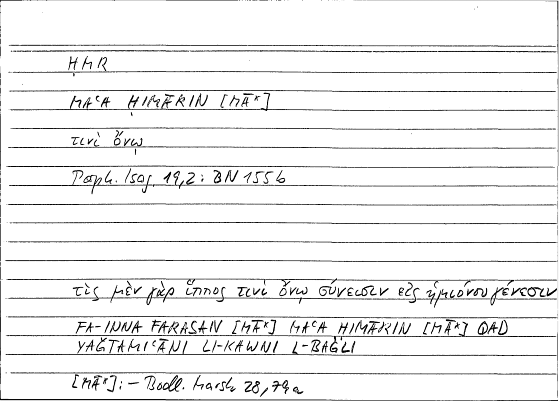 ḤMR
MAʿA ḤIMĀRIN [MĀˣ]
τινὶ ὄνῳ
Porph. Isag. 19,2: BN 155b
τὶς μὲν γὰρ ἵππος τινὶ ὄνῳ σύνεισιν εἰς ἡμιόνου γένεσιν
FA-INNA FARASAN [MĀˣ] MAʿA ḤIMĀRIN [MĀˣ] QAD
YAǦTAMIʿĀNI LI-KAWNI L-BAĠLI
[MĀˣ]: – Bodl. Marsh 28,79a